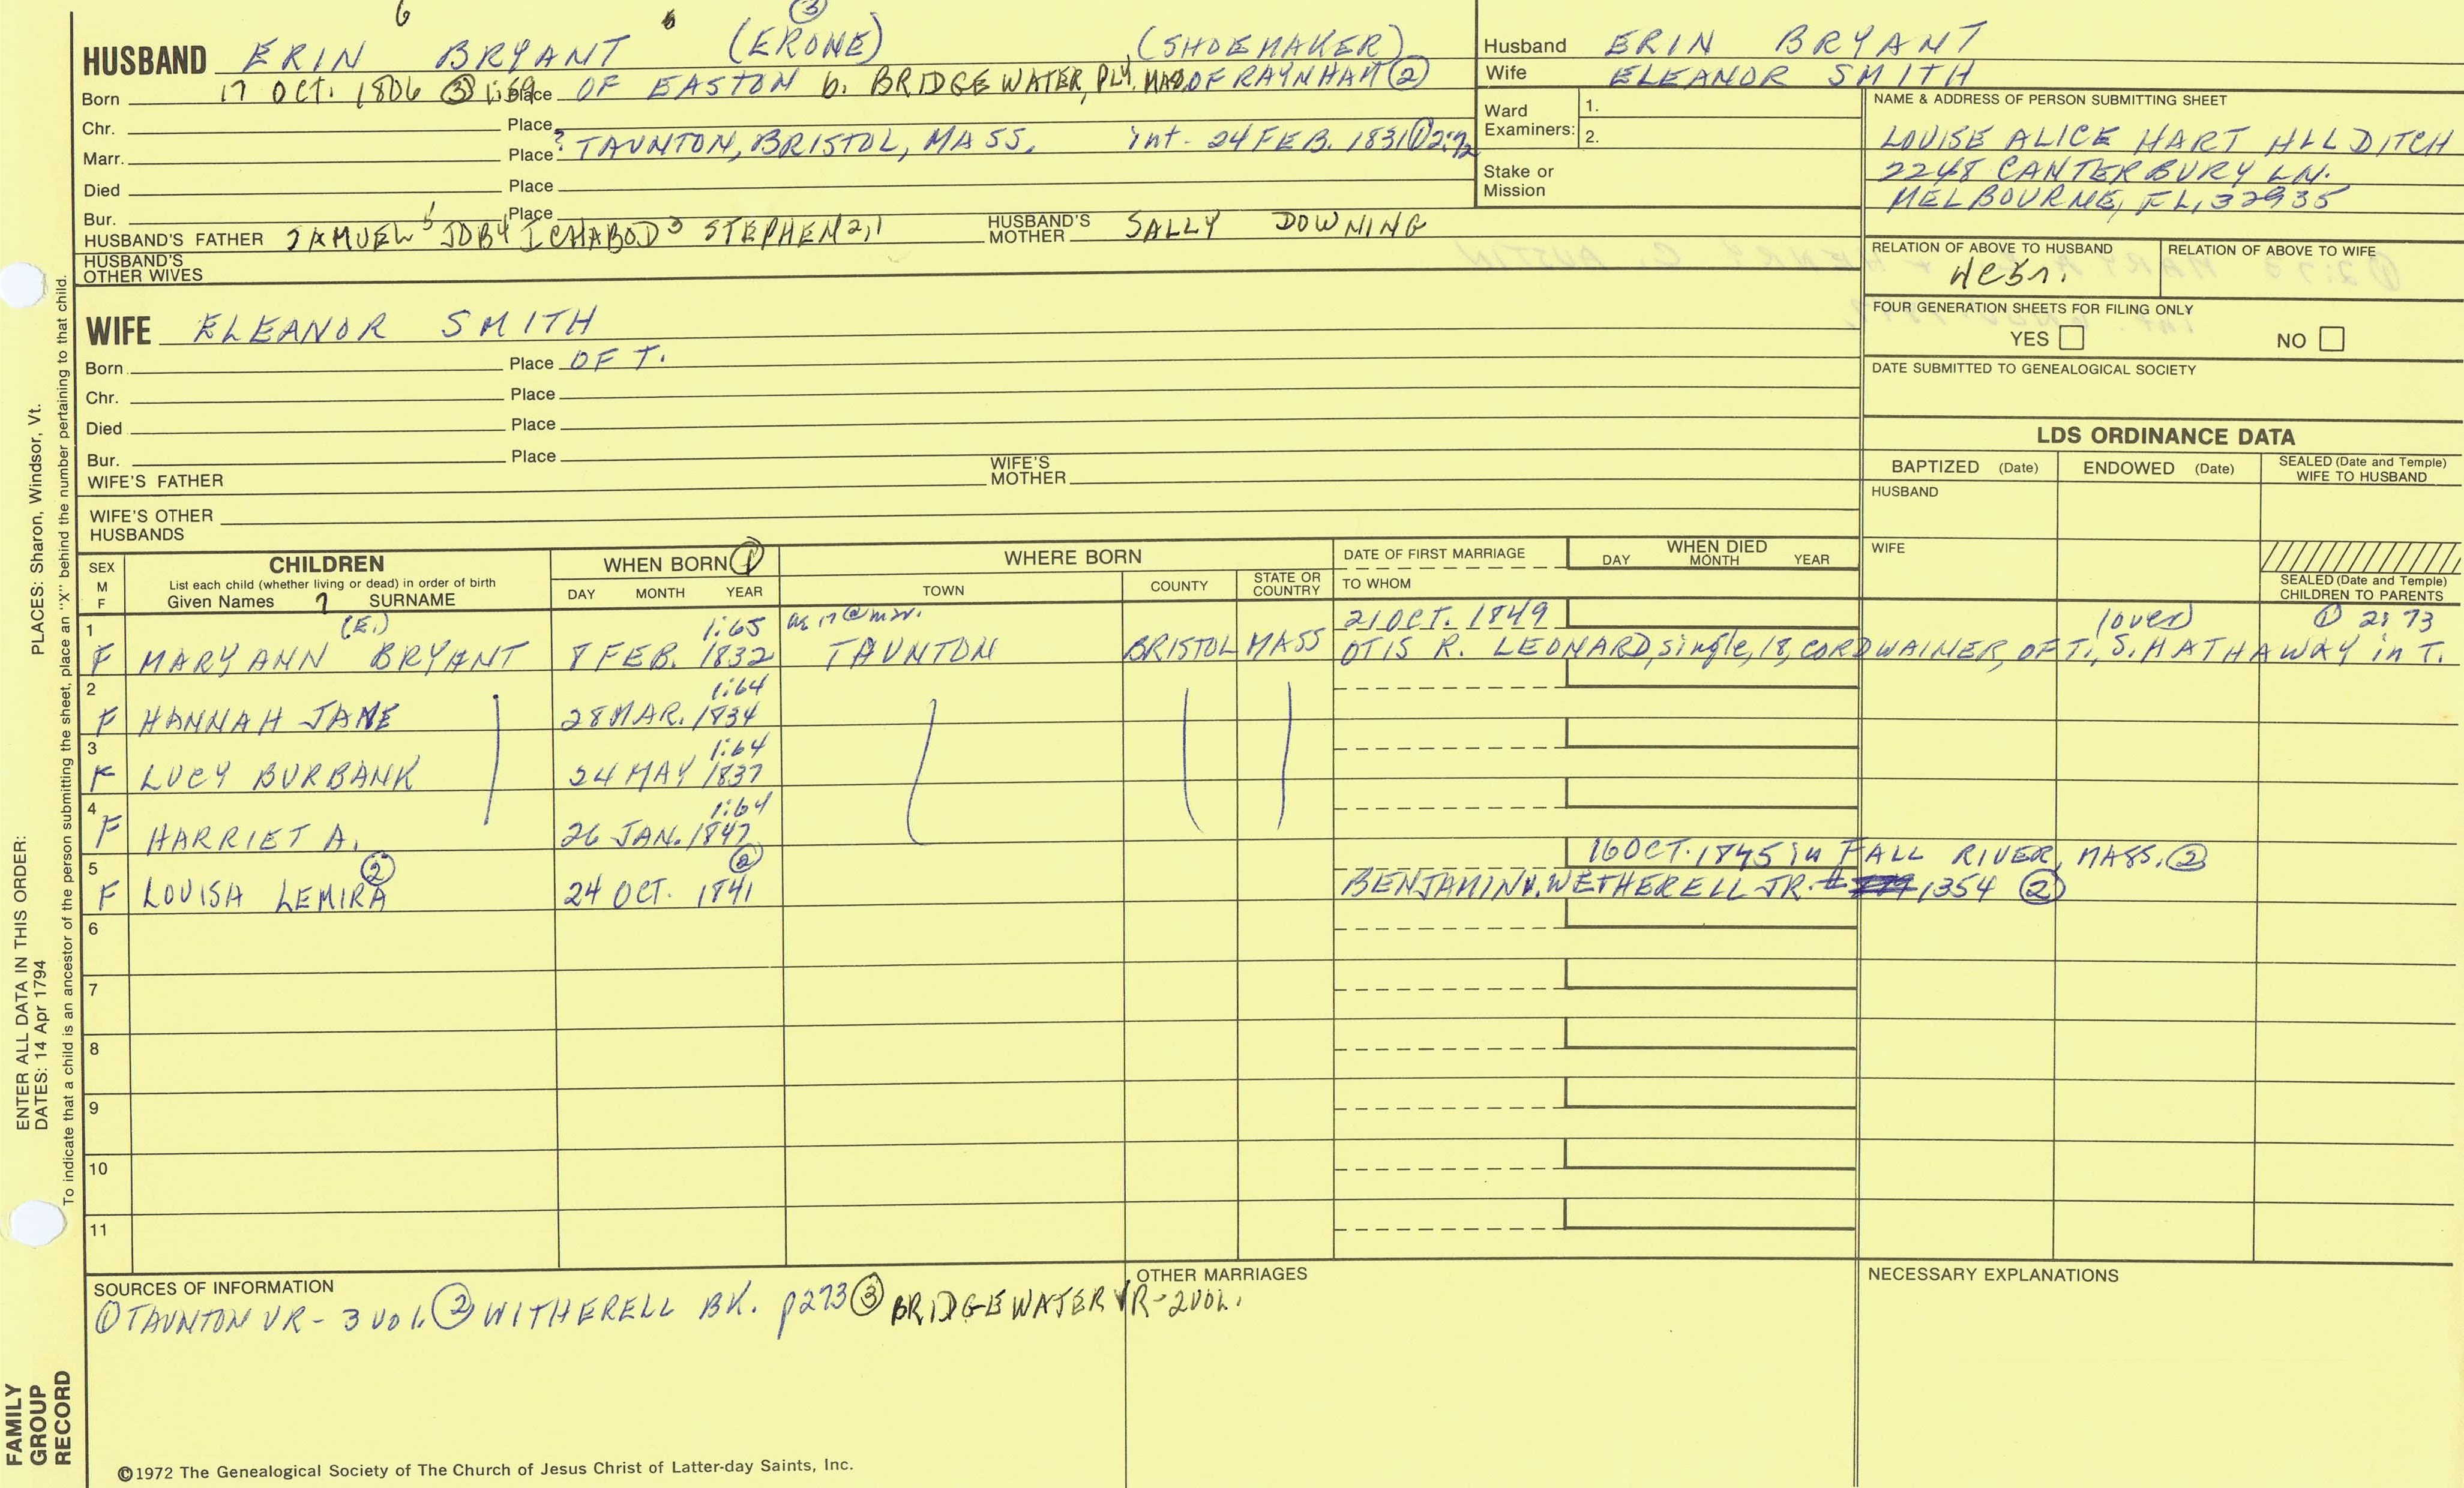 6 6 ③
HUSBAND ERIN BRYANT (ERONE) (SHOEMAKER)
Born 17 OCT. 1806 ③ 1:69 Place OF EASTON b. BRIDGEWATER, PLY. MASS OF RAYNHAM ②
Chr. Place
Marr. Place ? TAUNTON, BRISTOL, MASS. int. 24 FEB. 1831 ① 2:72
Died Place
Bur. Place
HUSBAND'S FATHER SAMUEL 5 JOB 4 ICHABOD 3 STEPHEN 2,1 HUSBAND'S MOTHER SALLY DOWNING
HUSBAND'S OTHER WIVES
WIFE ELEANOR SMITH
Born Place OF T.
Chr. Place
Died Place
Bur. Place
WIFE'S FATHER WIFE'S MOTHER
WIFE'S OTHER HUSBANDS
Husband ERIN BRYANT
Wife ELEANOR SMITH
Ward Examiners: 1.
2.
Stake or Mission
NAME & ADDRESS OF PERSON SUBMITTING SHEET
LOUISE ALICE HART
2248 CANTERBURY LN.
MELBOURNE, FL, 32935
RELATION OF ABOVE TO HUSBAND RELATION OF ABOVE TO WIFE
FOUR GENERATION SHEETS FOR FILING ONLY
YES NO
DATE SUBMITTED TO GENEALOGICAL SOCIETY
LDS ORDINANCE DATA
BAPTIZED (Date) ENDOWED (Date) SEALED (Date and Temple) WIFE TO HUSBAND
HUSBAND
WIFE
SEALED (Date and Temple) CHILDREN TO PARENTS
SEX M F
CHILDREN
List each child (whether living or dead) in order of birth
Given Names 7 SURNAME
WHEN BORN ①
DAY MONTH YEAR
WHERE BORN
TOWN COUNTY STATE OR COUNTRY
DATE OF FIRST MARRIAGE
TO WHOM
WHEN DIED
DAY MONTH YEAR
1 (E.) 1:65 21 OCT. 1849 (over) ① 2:73
F MARY ANN BRYANT 8 FEB. 1832 TAUNTON BRISTOL MASS OTIS R. LEONARD, single, 18, CORDWAINER, OF T., S. HATHAWAY in T.
2 1:64
F HANNAH JANE 28 MAR. 1834
3 1:64
F LUCY BURBANK 24 MAY 1837
4 1:64
F HARRIET A. 26 JAN. 1847
5 ② ② 16 OCT. 1845 in FALL RIVER, MASS. ②
F LOUISA LEMIRA 24 OCT. 1841 BENJAMIN WETHERELL JR. # 1354 ②
6
7
8
9
10
11
SOURCES OF INFORMATION
① TAUNTON VR - 3 vol. ② WITHERELL BK. p273 ③ BRIDGEWATER VR - 2 VOL.
OTHER MARRIAGES
NECESSARY EXPLANATIONS
©1972 The Genealogical Society of The Church of Jesus Christ of Latter-day Saints, Inc.
ENTER ALL DATA IN THIS ORDER:
DATES: 14 Apr 1794
PLACES: Sharon, Windsor, Vt.
To indicate that a child is an ancestor of the person submitting the sheet, place an "X" behind the number pertaining to that child.
FAMILY GROUP RECORD